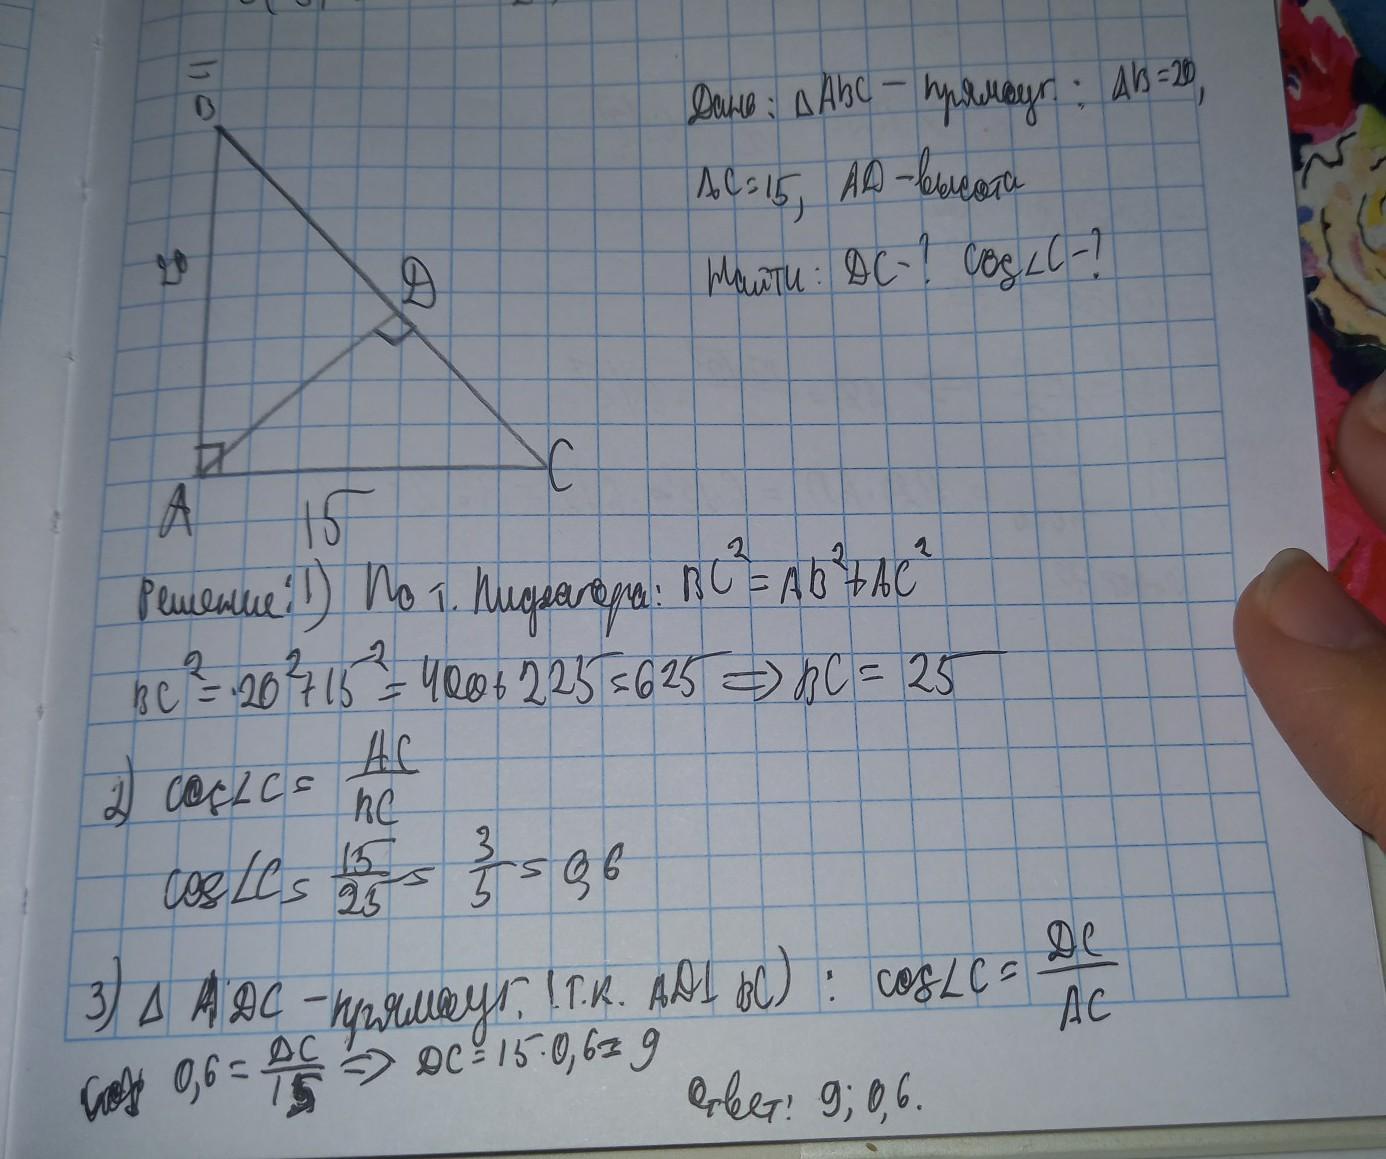 B
Дано: △ABC - прямоуг.: AB=20,
AC=15, AD - высота
20
D
Найти: DC-? cos∠C-?
A
C
15
Решение: 1) По т. Пифагора: BC²=AB²+AC²
BC²=20²+15²=400+225=625 => BC=25
2) cos∠C= AC/BC
cos∠C= 15/25 = 3/5 = 0,6
3) △ADC - прямоуг. (т.к. AD⊥BC): cos∠C= DC/AC
0,6 = DC/15 => DC=15·0,6=9
Ответ: 9; 0,6.